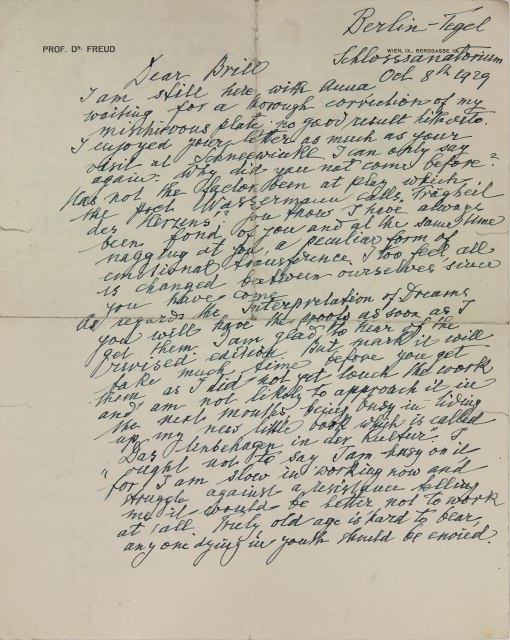 Berlin-Tegel
PROF. DR. FREUD
WIEN, IX., BERGGASSE 19.
Schlosssanatorium
Oct 8th 1929
Dear Brill
I am still here with Anna,
waiting for a thorough correction of my
mischivous plate, no good result hitherto.
I enjoyed your letter as much as your
visit at Schneewinkl. I can only say
again: Why did you not come before?
Has not the factor been at play which
the poet Wassermann calls, "Trägheit
des Herzens," You know I have always
been fond of you and at the same time
nagging at you, a peculiar form of
emotional transference. I too feel all
is changed between ourselves since
you have come.
As regards the Interpretation of Dreams
you will have the proofs as soon as I
get them. I am glad to hear of the
revised edition. But mark it will
take much time before you get
them as I did not yet touch the work
and am not likely to approach it in
the next months being busy in
up my new little book which is called
"Das Unbehagen in der Kultur. I
ought not to say I am busy on it
for I am slow in working now and
struggle against a resistance telling
me it would be better not to work
at all. Truly old age is hard to bear,
anyone dying in youth should be envied.